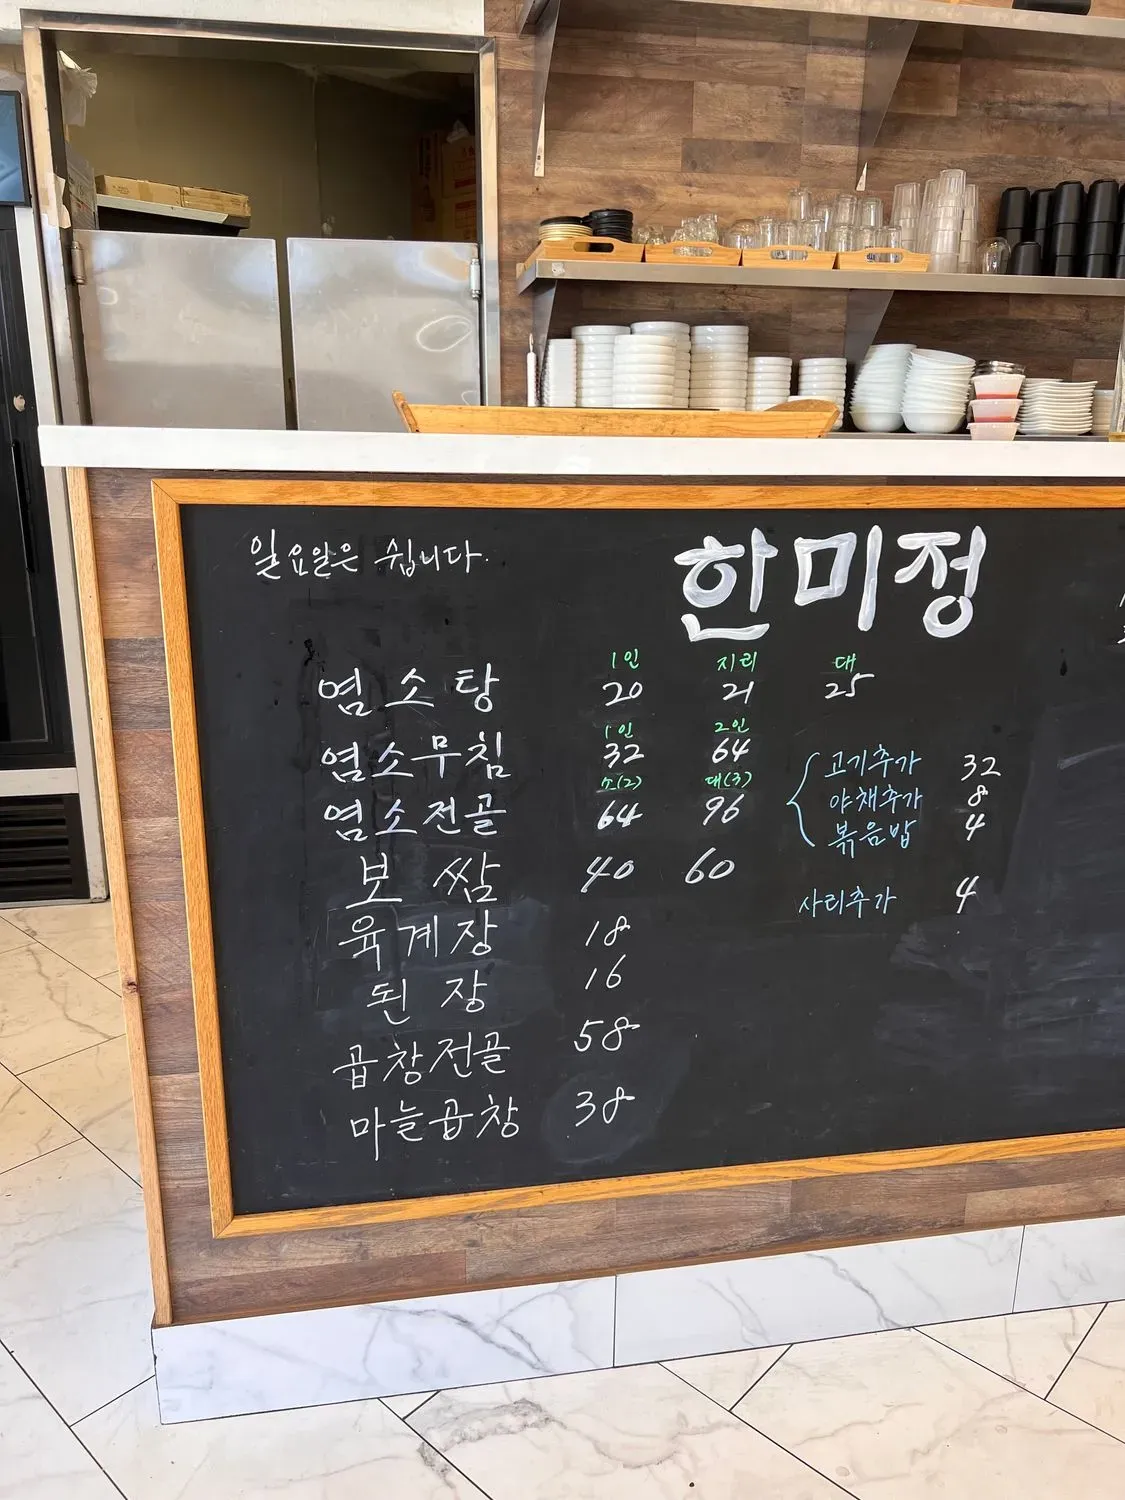 일요일은 쉽니다.
한미정
1인 지리 대
염소탕 20 21 25
1인 2인
염소무침 32 64
소(2) 대(3)
염소전골 64 96
고기추가 32
야채추가 8
볶음밥 4
보쌈 40 60
사리추가 4
육계장 18
된장 16
곱창전골 58
마늘곱창 38